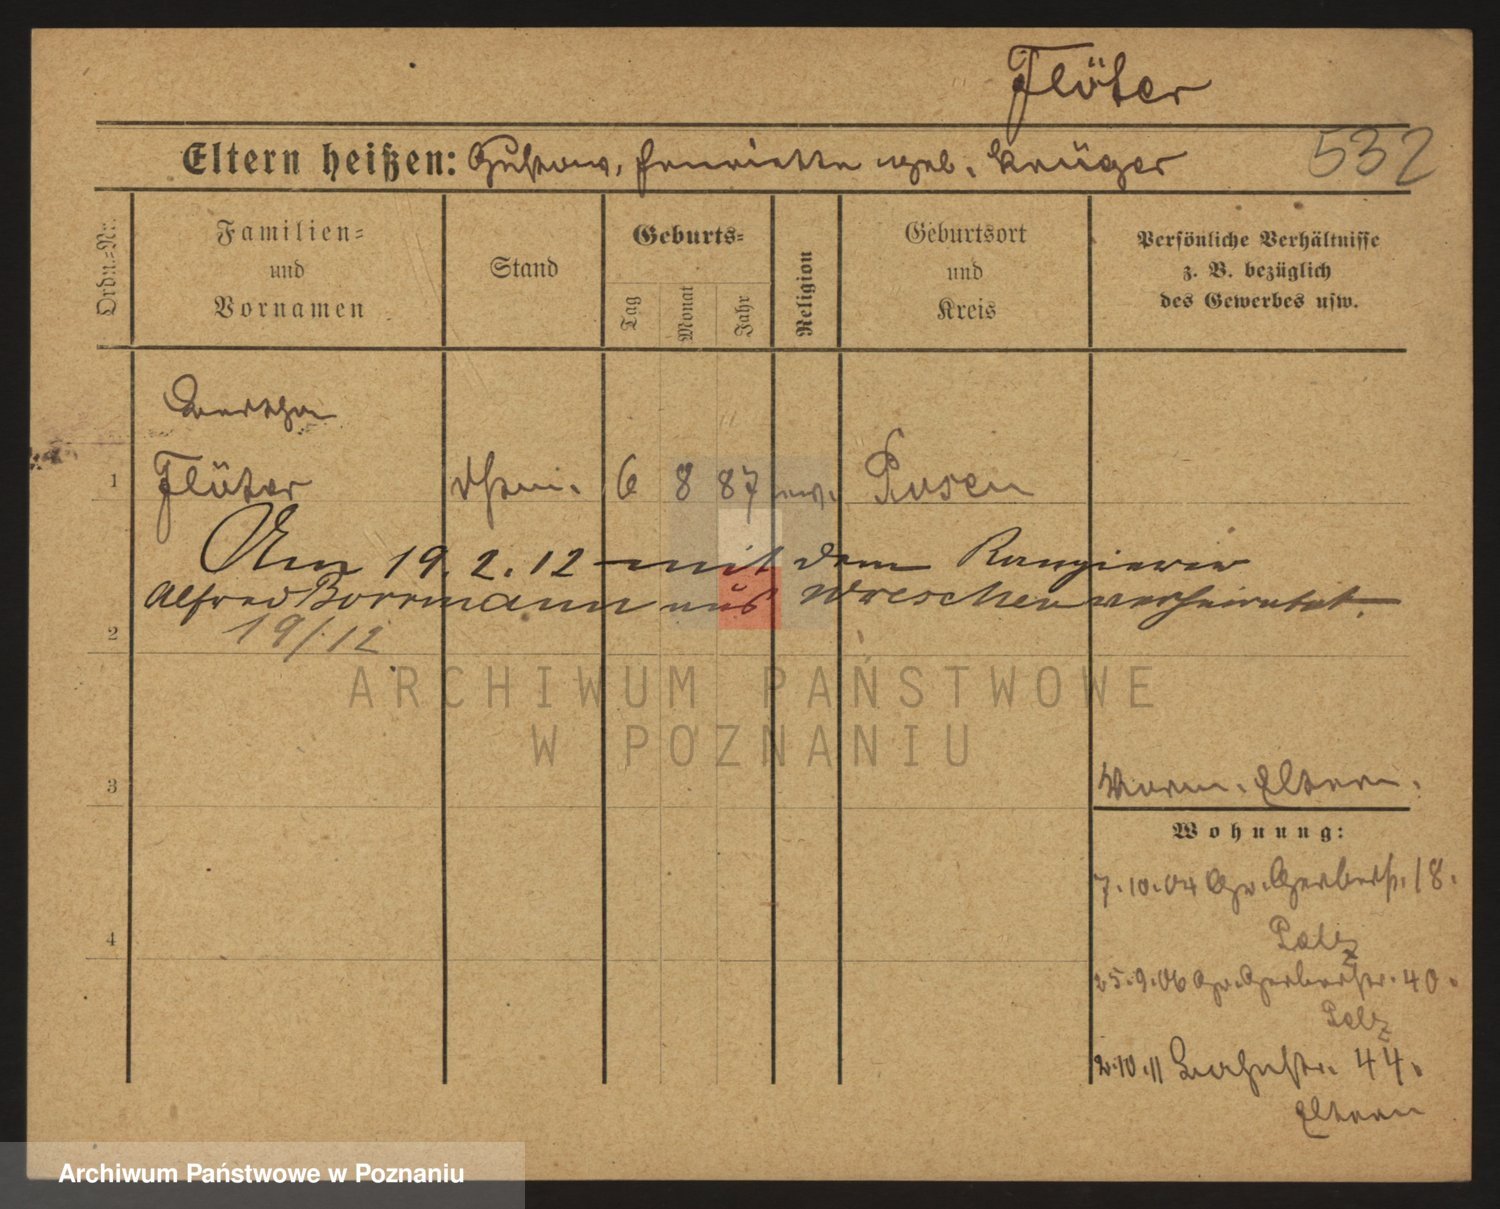 Flöter
Eltern heißen: Gustav, Henriette geb. Krüger
532
Ordn.-Nr.
Familien-
und
Vornamen
Stand
Geburts-
Tag
Monat
Jahr
Religion
Geburtsort
und
Kreis
Persönliche Verhältnisse
z. B. bezüglich
des Gewerbes usw.
Bertha
1 Flöter 6 8 87 ev. Posen
Am 19. 2. 12 mit dem Rangierer
Alfred Borrmann aus Wreschen verheiratet.
19/12
2
ARCHIWUM PAŃSTWOWE
W POZNANIU
3
Eltern.
Wohnung:
7.10.04 Gr. Gerberstr. 18.
4
25.9.06 Gr. Gerberstr. 40.
2.10.11 44.
Eltern
Archiwum Państwowe w Poznaniu